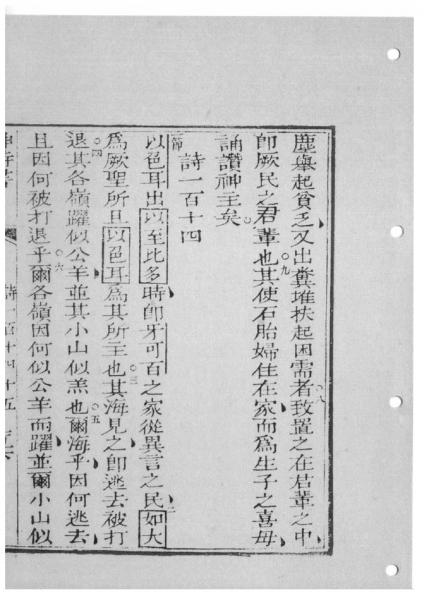 塵舉起貧乏又出糞堆扶起困需者致置之在君輩之中
即厥民之君輩也其使石胎婦住在家而為生子之喜母
誦讚神主矣
詩一百十四
以色耳出以至比多時即牙可百之家從異言之民如大
為厥聖所且以色耳為其所主也其海見之即逃去被打
退其各嶺躍似公羊並其小山似羔也爾海乎因何逃去
且因何被打退乎爾各嶺因何似公羊而躍並爾小山似
詩一百十四十五